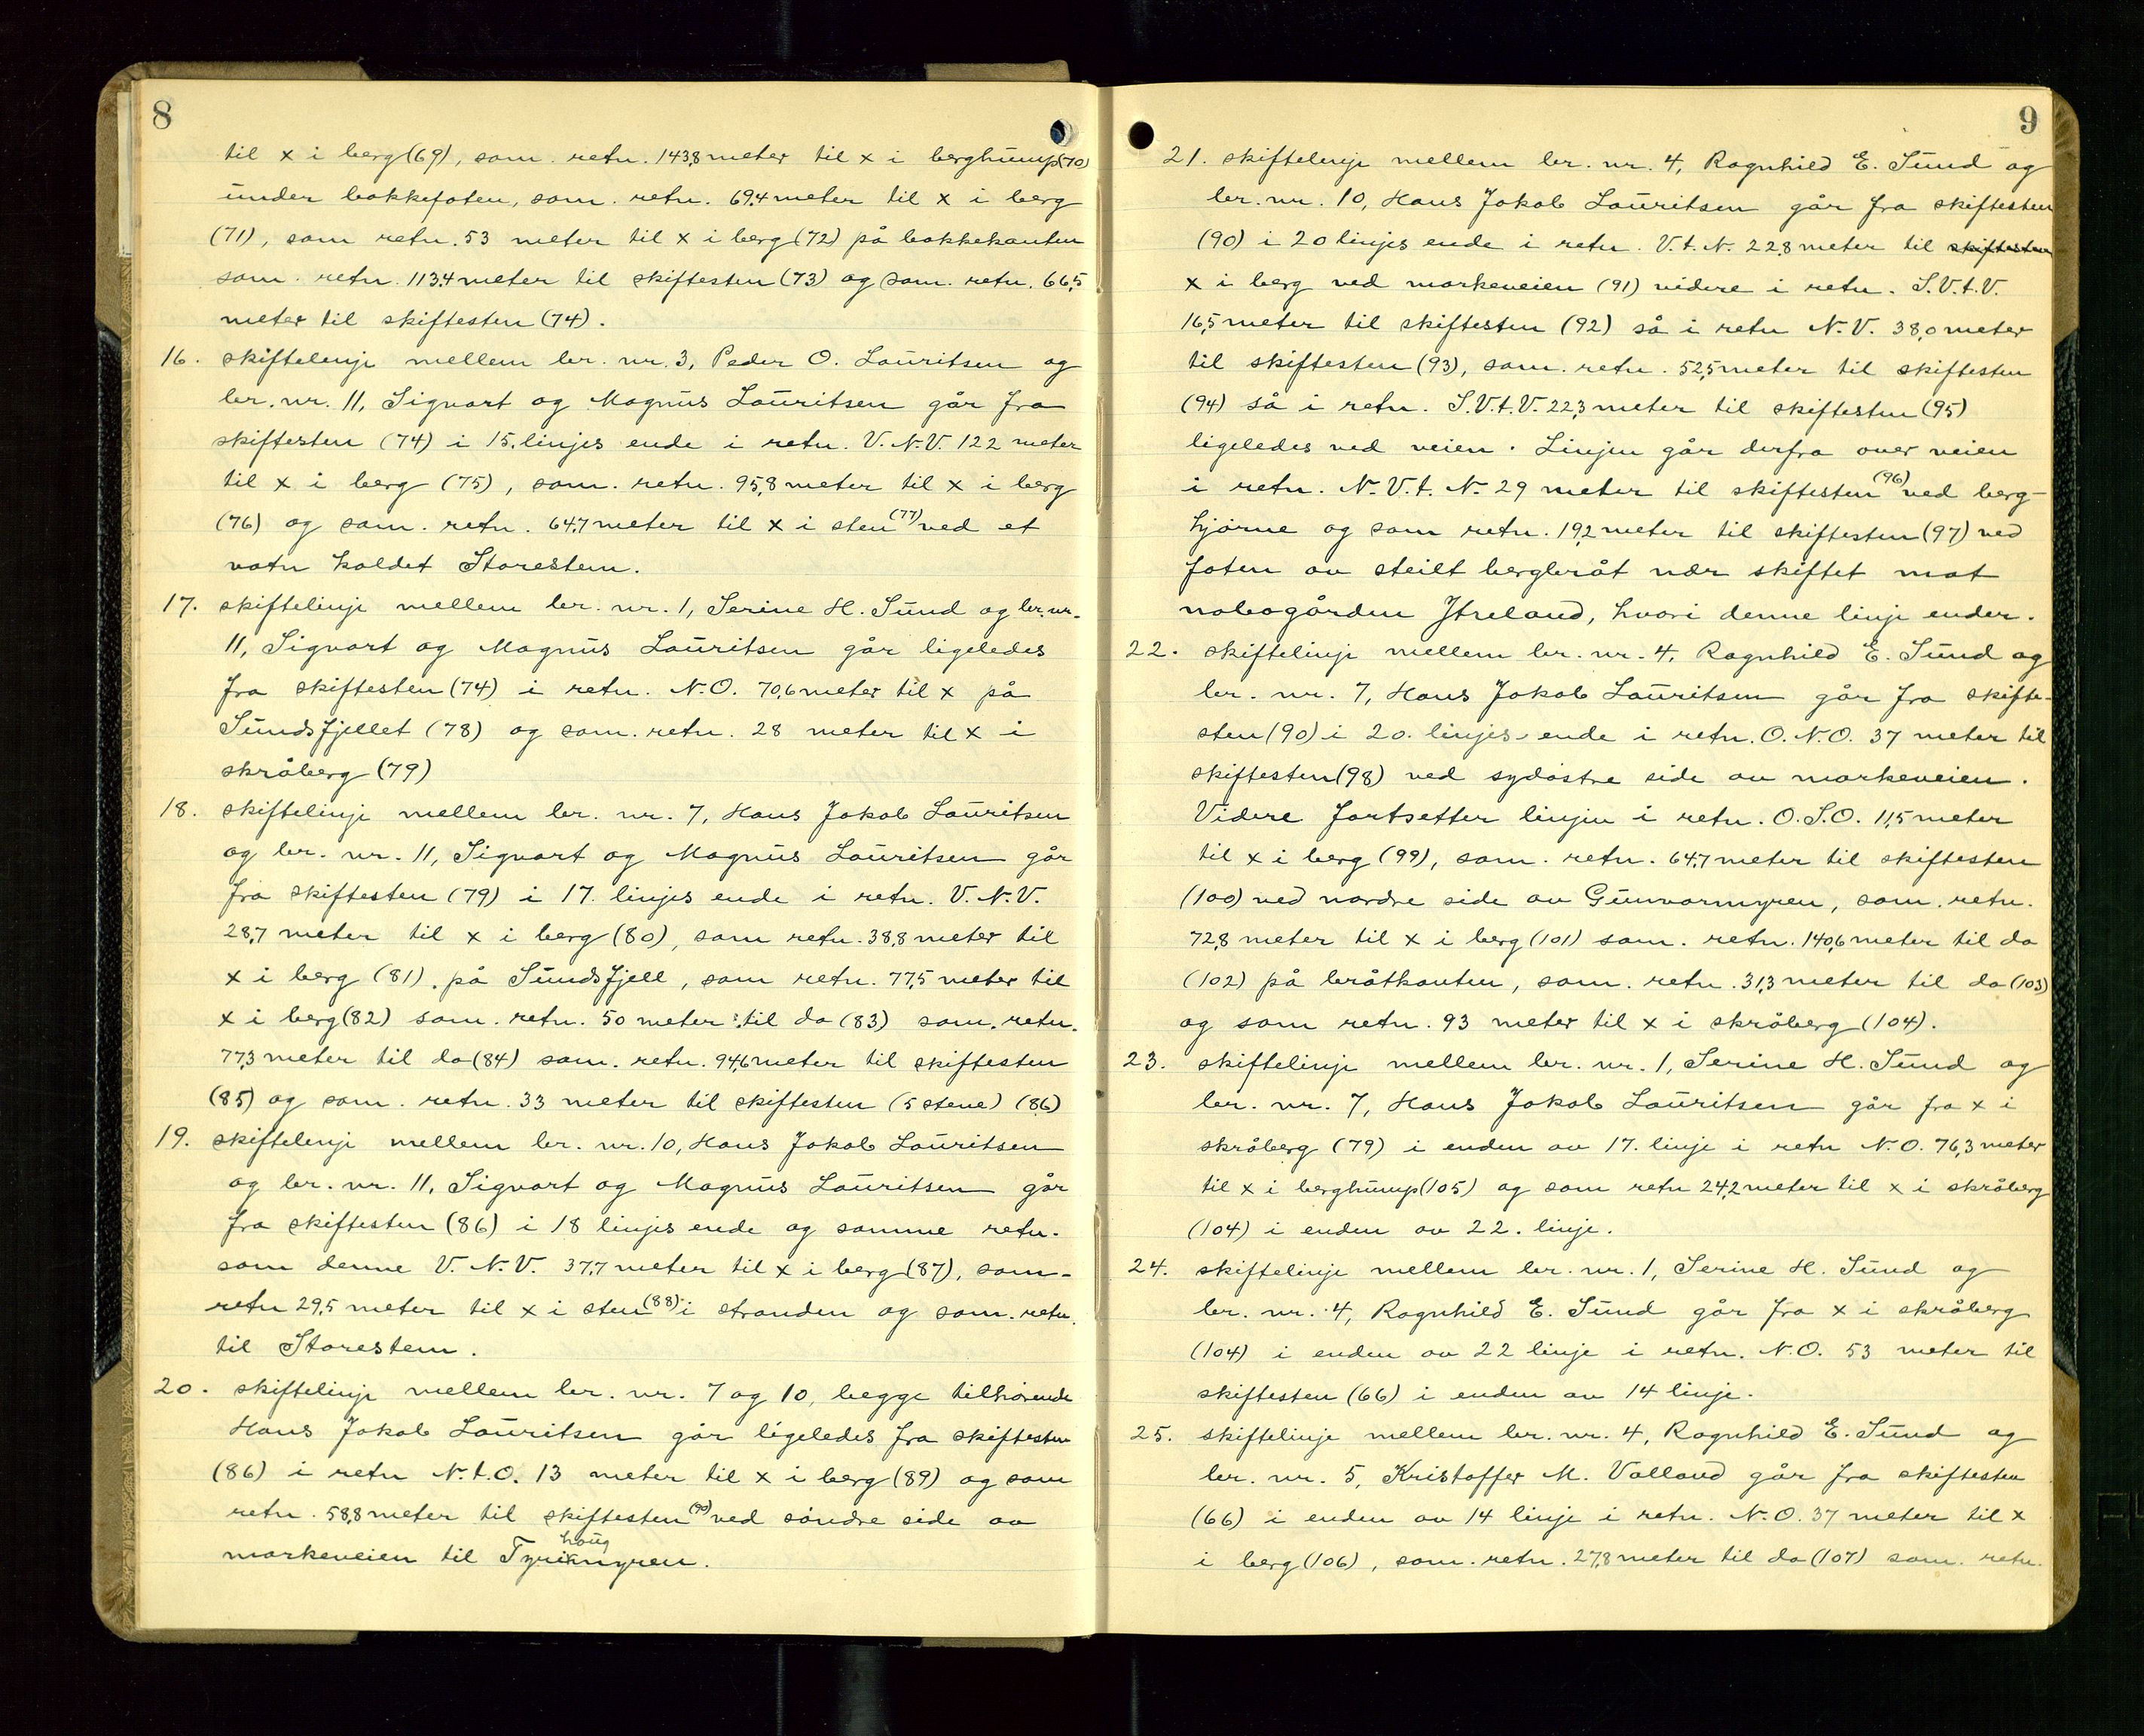 8
til x i berg (69), sam. retn. 143,8 meter til x i berghump (70)
under bakkefoten, sam. retn. 69,4 meter til x i berg
(71), sam retn. 53 meter til x i berg (72) på bakkekanten
sam. retn. 113,4 meter til skiftesten (73) og sam. retn. 66,5
meter til skiftesten (74).
16. skiftelinje mellem br. nr. 3, Peder O. Lauritsen og
br. nr. 11, Sigvart og Magnus Lauritsen går fra
skiftesten (74) i 15. linjes ende i retn. V. N.V. 122 meter
til x i berg (75), sam. retn. 95,8 meter til x i berg
(76) og sam. retn. 64,7 meter til x i sten (77) ved et
vatn kaldet Storestem.
17. skiftelinje mellem br. nr. 1, Serine H. Sund og br. nr.
11, Sigvart og Magnus Lauritsen går ligeledes
fra skiftesten (74) i retn. N.O. 70,6 meter til x på
Sundsfjellet (78) og sam. retn. 28 meter til x i
skråberg (79)
18. skiftelinje mellem br. nr. 7, Hans Jakob Lauritsen
og br. nr. 11, Sigvart og Magnus Lauritsen går
fra skiftesten (79) i 17. linjes ende i retn. V. N.V.
28,7 meter til x i berg (80), sam retn. 38,8 meter til
x i berg (81). på Sundsfjell, sam retn. 77,5 meter til
x i berg (82) sam. retn. 50 meter til do (83) sam. retn.
77,3 meter til do (84) sam. retn. 94,6 meter til skiftesten
(85) og sam. retn. 33 meter til skiftesten (5 stene) (86)
19. skiftelinje mellem br. nr. 10, Hans Jakob Lauritsen
og br. nr. 11, Sigvart og Magnus Lauritsen går
fra skiftesten (86) i 18 linjes ende og samme retn.
som denne V. N.V. 37,7 meter til x i berg (87), sam.
retn 29,5 meter til x i sten (88) i stranden og sam. retn.
til Storestem.
20. skiftelinje mellem br. nr. 7 og 10, begge tilhørende
Hans Jakob Lauritsen går ligeledes fra skiftesten
(86) i retn N.t.O. 13 meter til x i berg (89) og sam
retn. 58,8 meter til skiftesten (90) ved søndre side av
haug
markeveien til Tyrikmyren.
9
21. skiftelinje mellem br. nr. 4, Ragnhild E. Sund og
br. nr. 10, Hans Jakob Lauritsen går fra skiftesten
(90) i 20 linjes ende i retn. V.t.N. 22,8 meter til skiftesten
x i berg ved markeveien (91) videre i retn. S.V.t.V.
16,5 meter til skiftesten (92) så i retn N.V. 38,0 meter
til skiftesten (93), sam. retn. 52,5 meter til skiftesten
(94) så i retn. S.V.t.V. 22,3 meter til skiftesten (95)
ligeledes ved veien. Linjen går derfra over veien
i retn. N.V.t.N. 29 meter til skiftesten (96) ved berg-
hjørne og sam retn. 19,2 meter til skiftesten (97) ved
foten av steilt bergbråt nær skiftet mot
nabogården Ytreland, hvori denne linje ender.
22. skiftelinje mellem br. nr. 4, Ragnhild E. Sund og
br. nr. 7, Hans Jakob Lauritsen går fra skifte-
sten (90) i 20. linjes ende i retn. O.N.O. 37 meter til
skiftesten (98) ved sydøstre side av markeveien.
Videre fortsetter linjen i retn. O.S.O. 11,5 meter
til x i berg (99), sam. retn. 64,7 meter til skiftesten
(100) ved nordre side av Gunvormyren, sam. retn.
72,8 meter til x i berg (101) sam. retn. 140,6 meter til do
(102) på bråtkanten, sam. retn. 31,3 meter til do (103)
og sam retn. 93 meter til x i skråberg (104).
23. skiftelinje mellem br. nr. 1, Serine H. Sund og
br. nr. 7, Hans Jakob Lauritsen går fra x i
skråberg (79) i enden av 17. linje i retn N.O. 76,3 meter
til x i berghump (105) og sam retn 24,2 meter til x i skråberg
(104) i enden av 22. linje.
24. skiftelinje mellem br. nr. 1, Serine H. Sund og
br. nr. 4, Ragnhild E. Sund går fra x i skråberg
(104) i enden av 22 linje i retn. N.O. 53 meter til
skiftesten (66) i enden av 14 linje.
25. skiftelinje mellem br. nr. 4, Ragnhild E. Sund og
br. nr. 5, Kristoffer M. Valland går fra skiftesten
(66) i enden av 14 linje i retn. N.O. 37 meter til x
i berg (106), sam. retn. 27,8 meter til do (107) sam. retn.